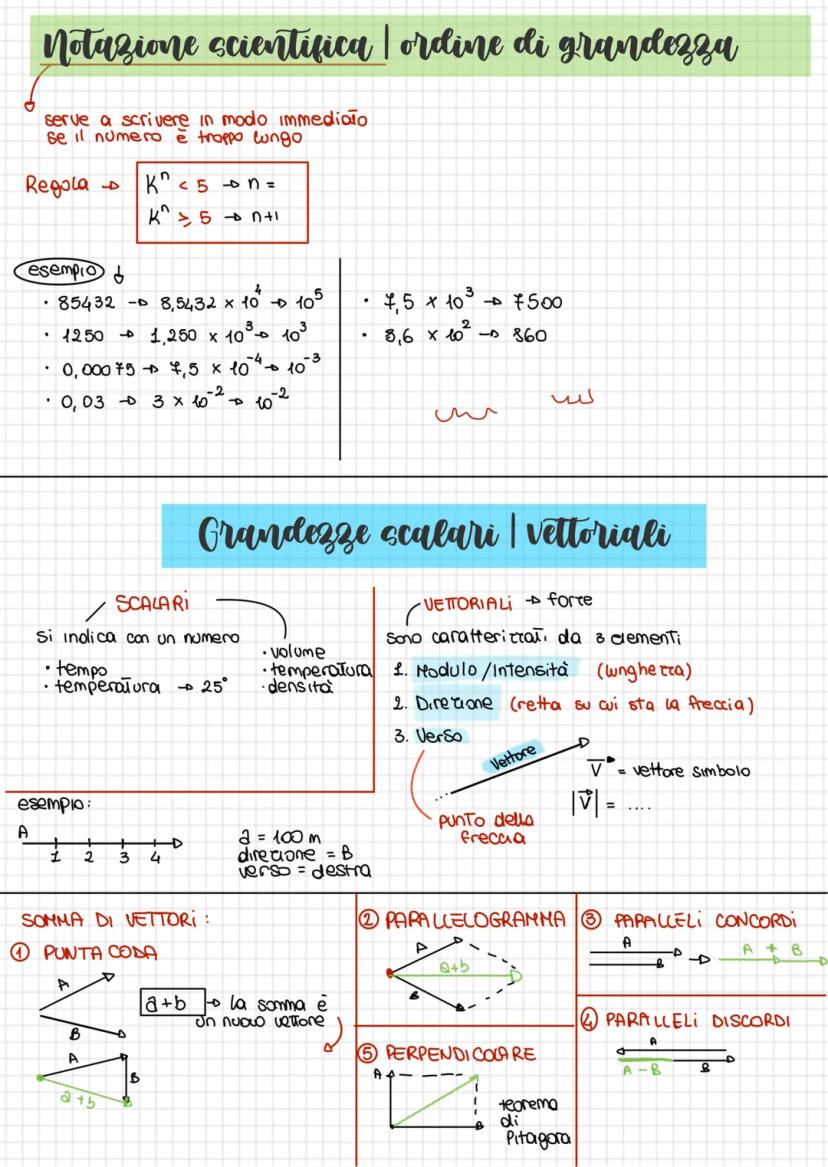 Notazione scientifica | ordine di grandezza
serve a scrivere in modo immediato
se il numero è troppo lungo
Regola → Kⁿ < 5 → n =
Kⁿ ⩾ 5 → n+1
esempio ↓
· 85432 → 8,5432 × 10⁴ → 10⁵
· 1250 → 1,250 × 10³ → 10³
· 0,00075 → 7,5 × 10⁻⁴ → 10⁻³
· 0,03 → 3 × 10⁻² → 10⁻²
· 7,5 × 10³ → 7500
· 3,6 × 10² → 360
Grandezze scalari | vettoriali
SCALARI
si indica con un numero
· tempo
· temperatura → 25°
· volume
· temperatura
· densità
VETTORIALI → forze
sono caratterizzati da 3 elementi
1. Modulo/Intensità (lunghezza)
2. Direzione (retta su cui sta la freccia)
3. Verso
Vettore
V⃗ = vettore simbolo
|V⃗| = ....
punto della
freccia
esempio:
A
1 2 3 4
a = 100 m
direzione = B
verso = destra
SOMMA DI VETTORI:
① PUNTA CODA
A
B
a+b → la somma è
un nuovo vettore
A
B
a+b
② PARALLELOGRAMMA
A
a+b
B
⑤ PERPENDICOLARE
A
B
teorema
di
Pitagora
③ PAPALLELI CONCORDI
A
B
A + B
④ PARALLELI DISCORDI
A
A - B B